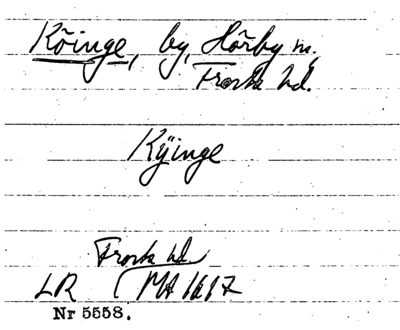 Köinge, by, Hörby sn.
Frosta hd.
Kÿinge
Frosta hd
LR (MA 1617
Nr 5558.